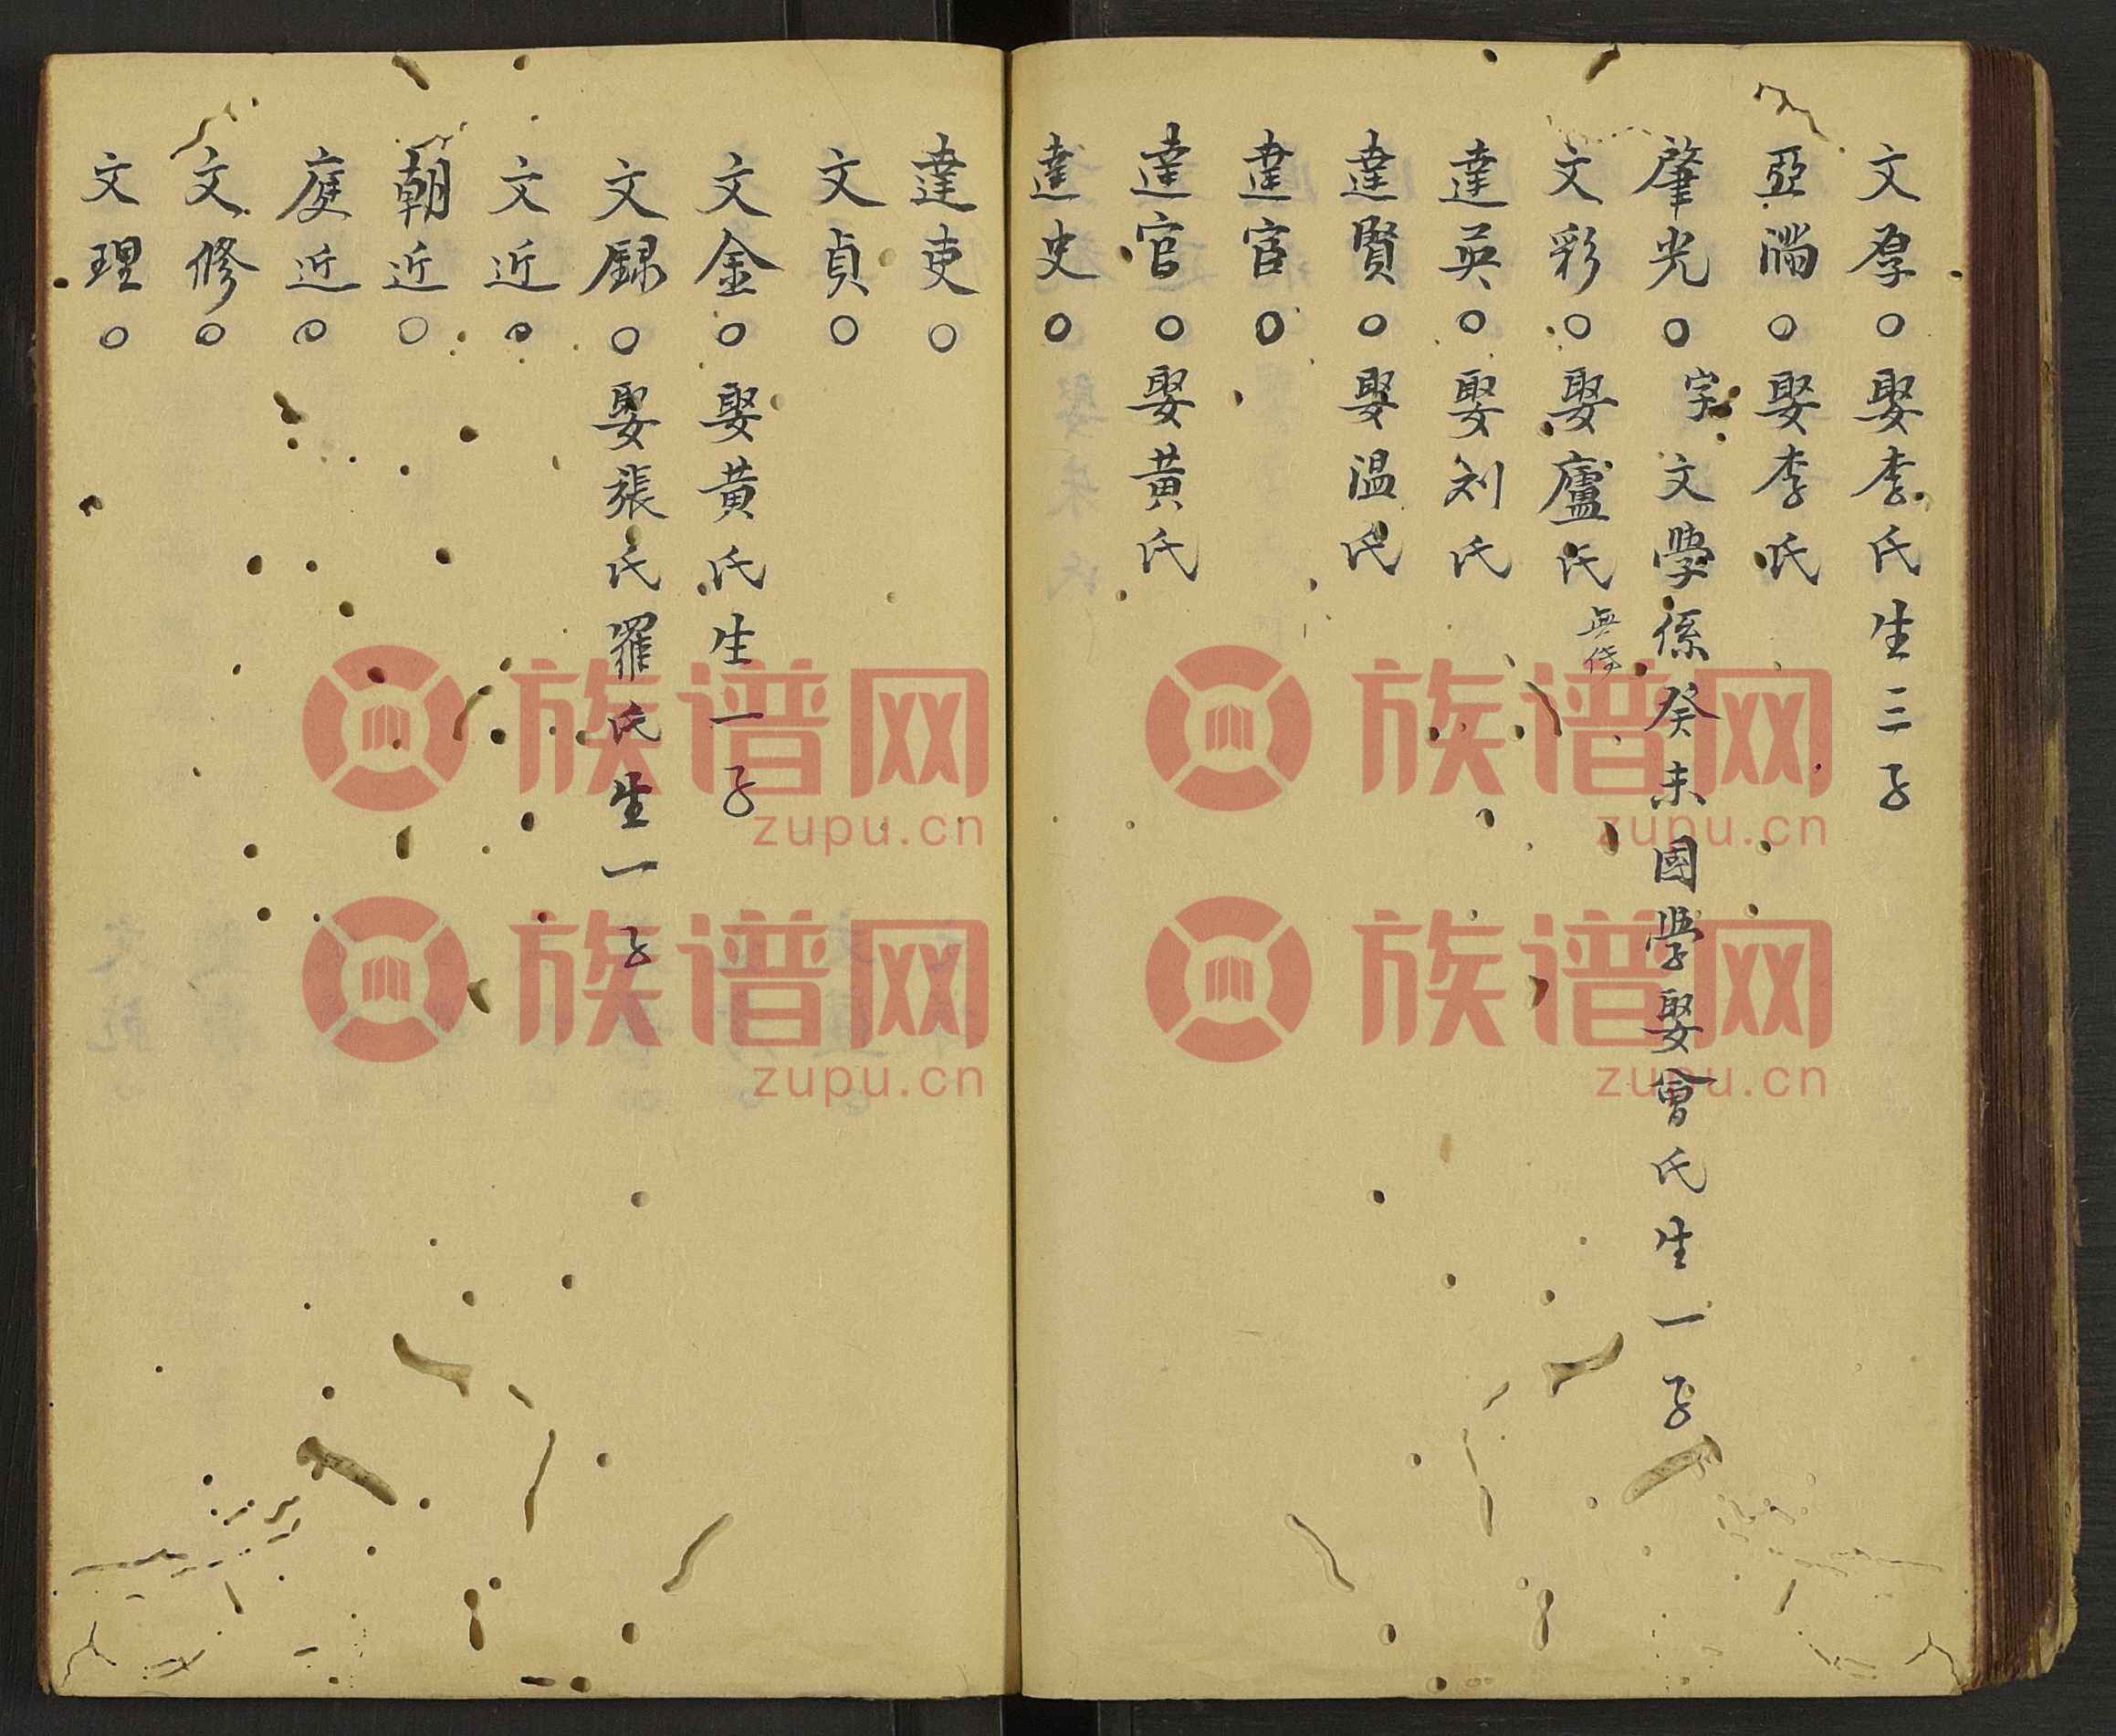 文羣○娶李氏生三子
亞湍○娶李氏
肇光○字文學係癸未國學娶曾氏生一子
文彩○娶盧氏無傳
達英○娶刘氏
達賢○娶温氏
達官○
達官○娶黃氏
達史○
達吏○
文貞○
文金○娶黃氏生一子
文録○娶張氏羅氏生一子
文近○
朝近○
庭近○
文修○
文理○
族谱网
zupu.cn
族谱网
zupu.cn
族谱网
zupu.cn
族谱网
zupu.cn